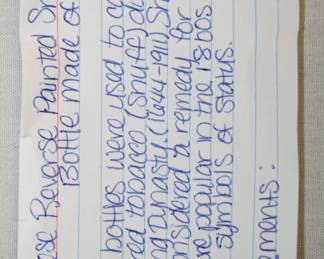 se Reverse Painted Sn
Bottle made of
bottles were used to c
ed tobacco (Snuff) du
ng Dynasty (1644-1911) Sn
nsidered a remedy for
re popular in the 1800s
symbols of status.
ements: